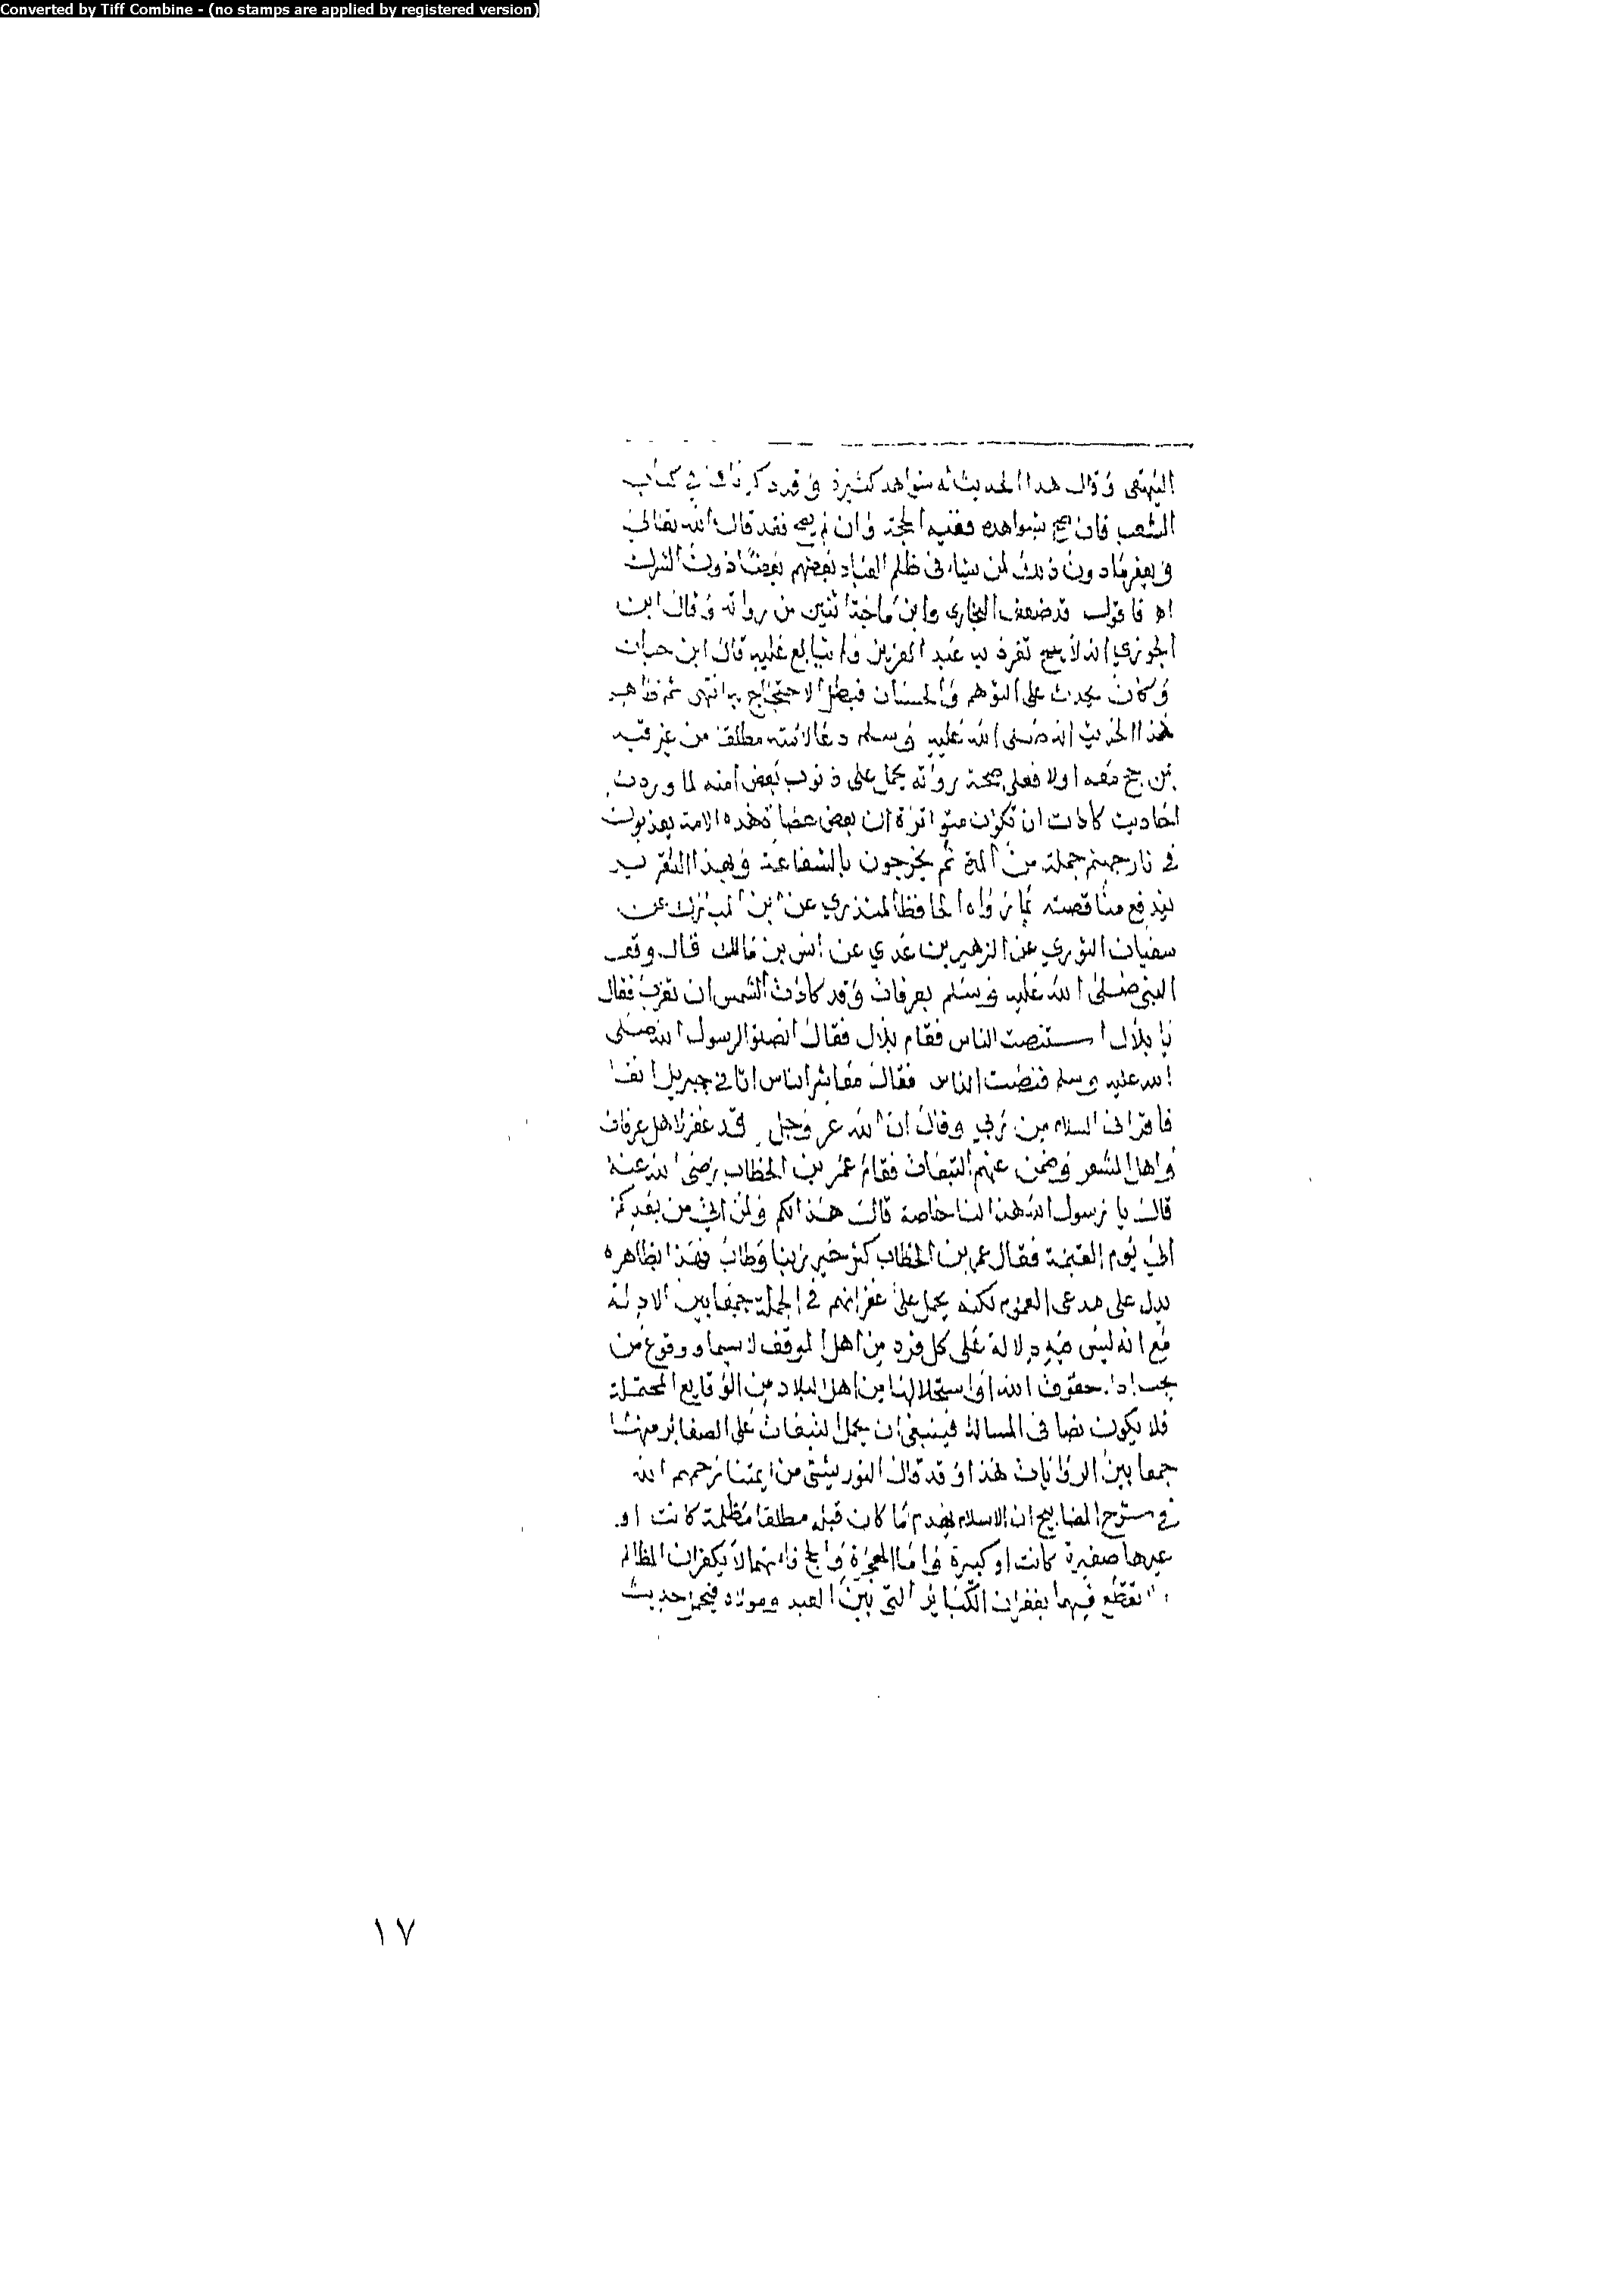 Converted by Tiff Combine - (no stamps are applied by registered version)
البيهقي وقال هذا الحديث له شواهد كثيرة وقد ذكرناها في كتاب
الشعب فان صح بشواهده ففيه الحجة وان لم يصح فقد قال الله تعالى
ويغفر مادون ذلك لمن يشاء وظلم العباد بعضهم بعضا دون الشرك
اه فاقول قد ضعف البخاري وابن ماجة اثنين من رواته وقال ابن
الجوزي انه لا يصح تفرد به عبد العزيز ولم يتابع عليه قال ابن حبان
وكان يحدث على التوهم والحسبان فبطل الاحتجاج به انتهى ثم ظاهر
هذا الحديث انه صلى الله عليه وسلم دعا لامته مطلقا من غير قيد
بمن حج معه اولا فعلى صحة رواته يحمل على ذنوب بعض امته لما وردت
احاديث كادت ان تكون متواترة ان بعض عصاة هذه الامة يعذبون
في نار جهنم جملة من ثم يخرجون بالشفاعة وبهذا التقرير
يندفع مناقضته بما رواه الحافظ المنذري عن ابن المبارك عن
سفيان الثوري عن الزهير بن عدي عن انس بن مالك قال وقف
النبي صلى الله عليه وسلم بعرفات وقد كادت الشمس ان تغرب فقال
يا بلال استنصت الناس فقام بلال فقال انصتوا لرسول الله صلى
الله عليه وسلم فنصت الناس فقال معاشر الناس اتاني جبريل انفا
فاقراني السلام من ربي وقال ان الله عز وجل قد غفر لاهل عرفات
واهل المشعر وضمن عنهم التبعات فقام عمر بن الخطاب رضي الله عنه
قال يا رسول الله هذا لنا خاصة قال هذا لكم ولمن اتى من بعدكم
الى يوم القيمة فقال عمر بن الخطاب كثر خير ربنا وطاب فهذا بظاهره
يدل على مدعى العموم لكنه يحمل على غفرانهم في الجملة جمعا بين الادلة
مع انه ليس فيه دلالة على كل فرد من اهل الموقف لاسيما ووقوع من
يجب ادا حقوق الله او استحلالنا من اهل البلاد من الوقايع المحتملة
فلا يكون نصا في المسالة فينبغي ان يحمل التبعات على الصغاير منها
جمعا بين الروايات هذا وقد قال التوربشتي من ايمتنا رحمهم الله
في شرح المصابيح ان الاسلام يهدم ما كان قبله مطلقا مظلمة كانت او
غيرها صغيرة كانت او كبيرة واما الهجرة والحج فانهما لا يكفران المظالم
نقطع فيهما بغفران الكباير التي بين العبد ومولاه فيحمل حديث
١٧